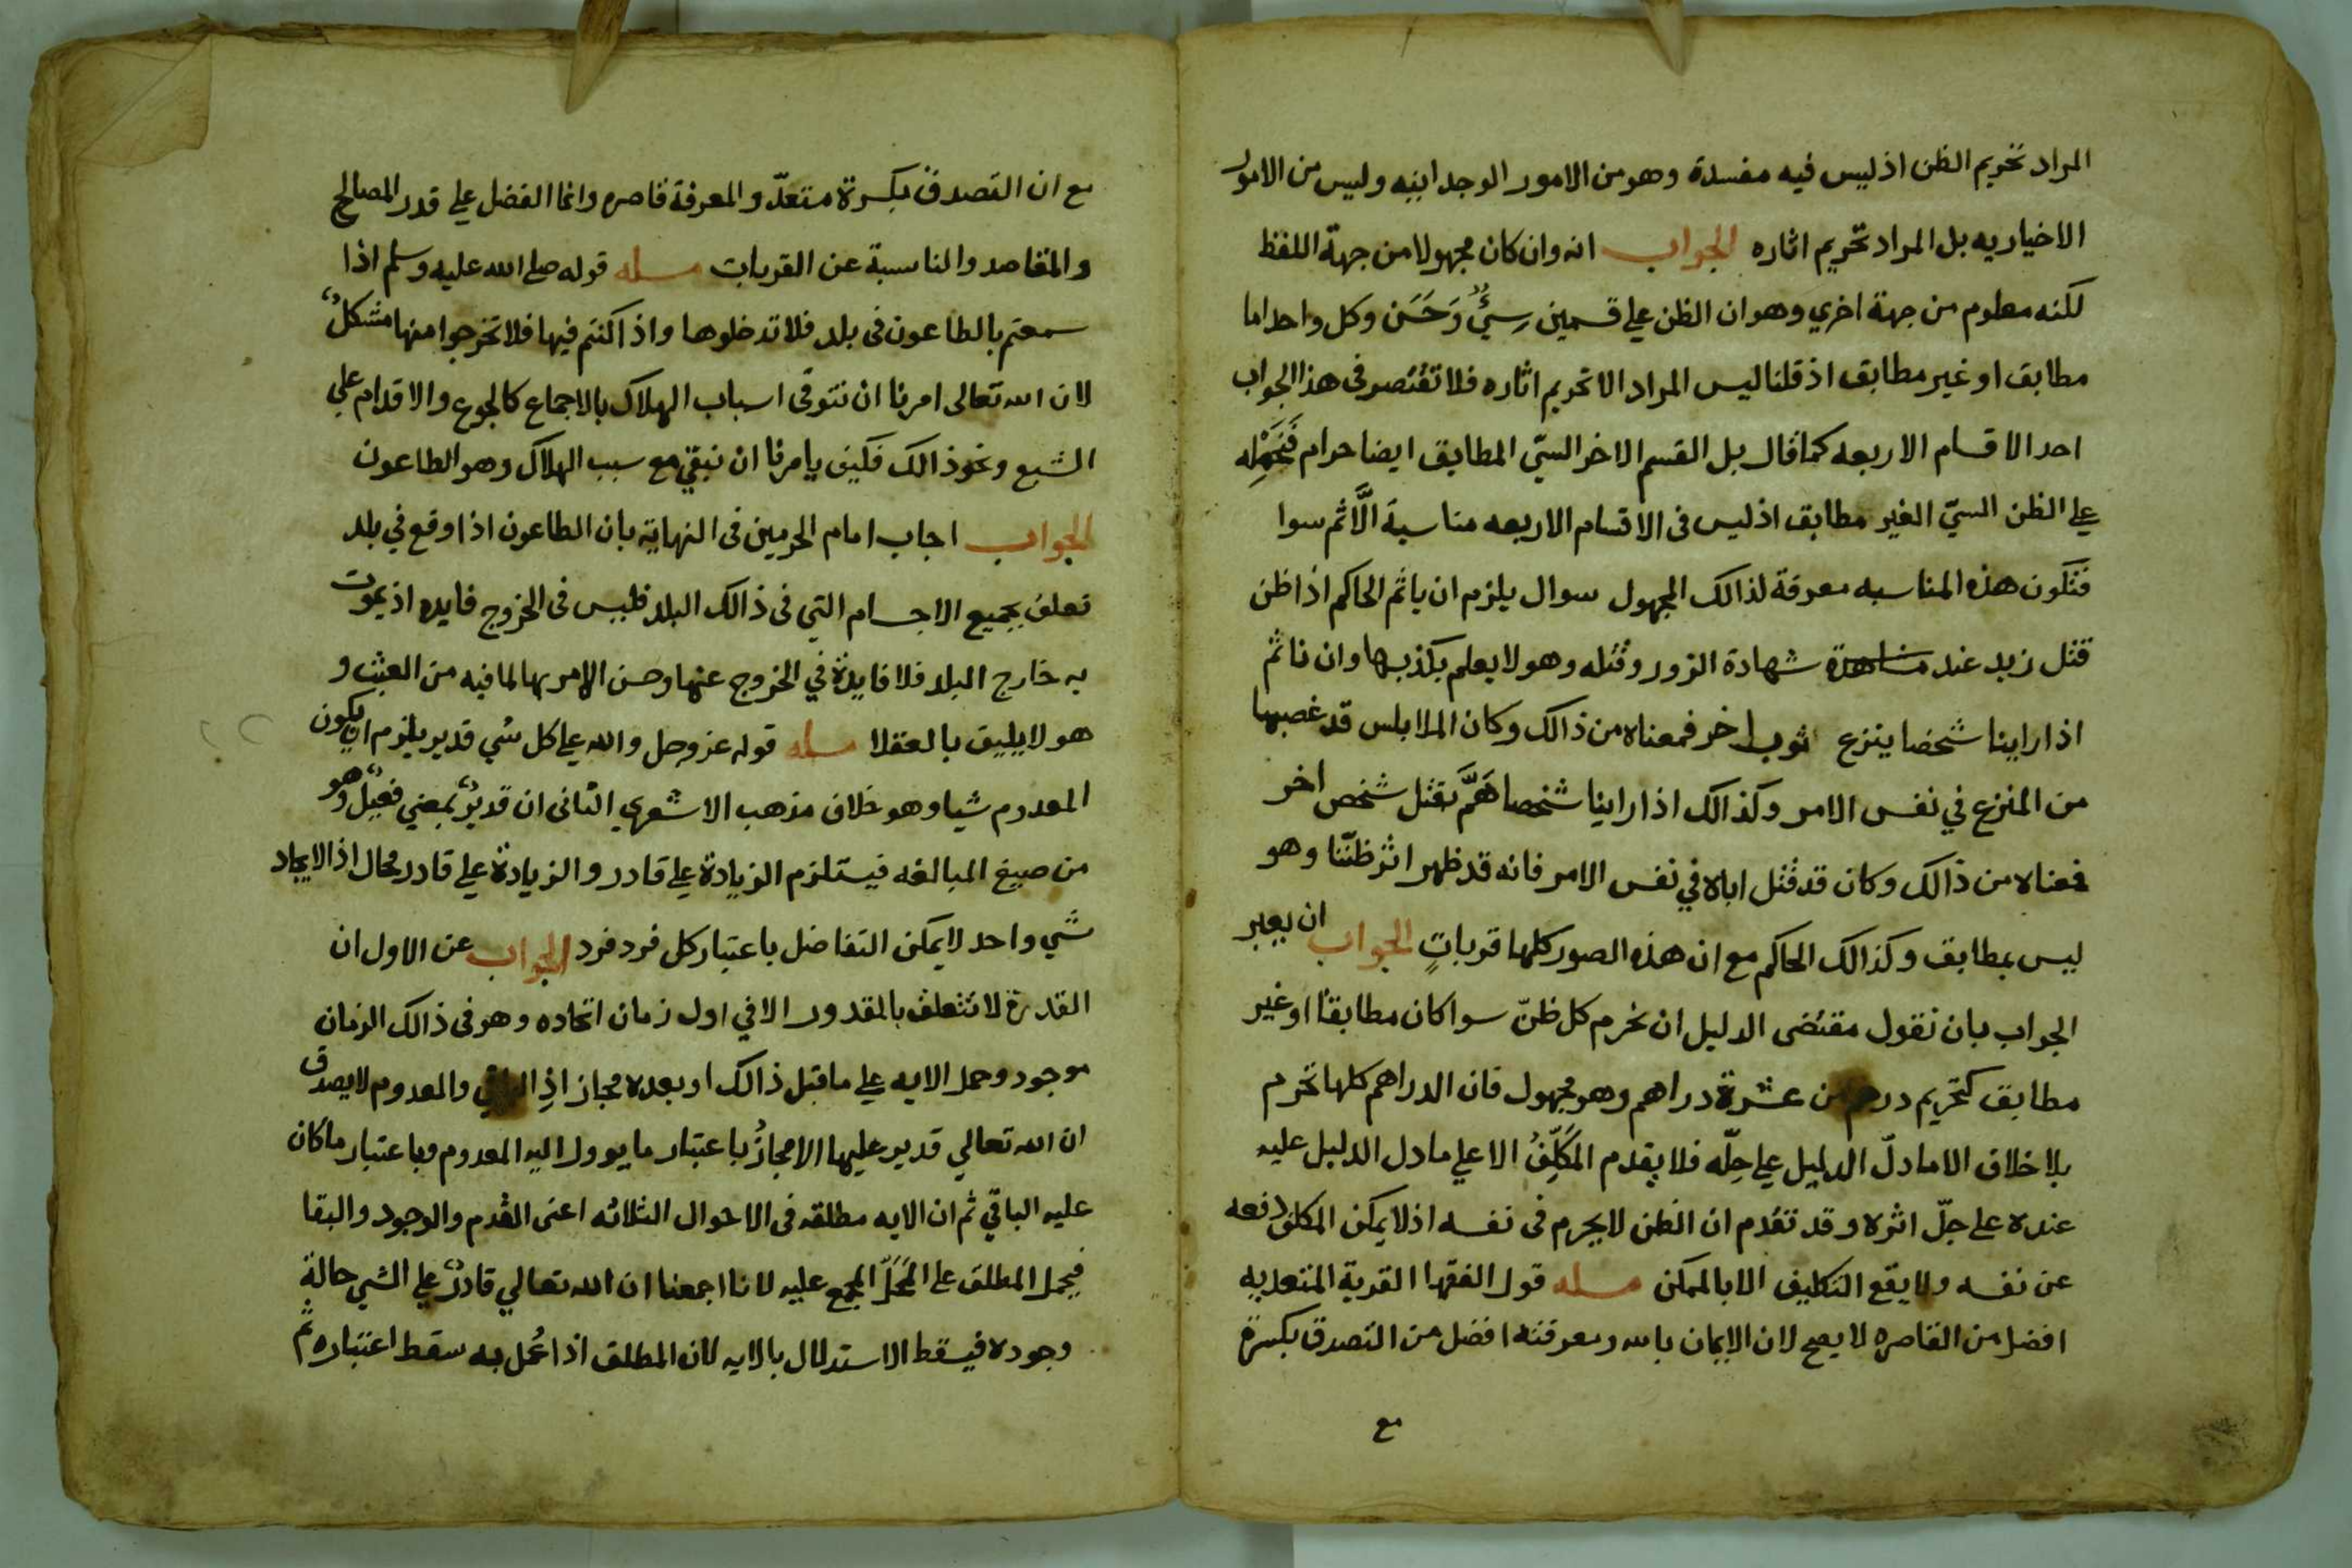 المراد تحريم الظن اذ ليس فيه مفسدة وهو من الامور الوجدانيه وليس من الامور
الاخياريه بل المراد تحريم اثاره الجواب انه وان كان مجهولا من جهة اللفظ
لكنه معلوم من جهة اخري وهو ان الظن علي قسمين سِيٌّ وَحَسَن وكل واحد اما
مطابق او غير مطابق اذ قلنا ليس المراد الا تحريم اثاره فلا تقتصر في هذا الجواب
احد الاقسام الاربعه كما قال بل القسم الاخر السيّ المطابق ايضا حرام فَنَحْمِله
علي الظن السيّ الغير مطابق اذ ليس في الاقسام الاربعه مناسبة الَّاثم سوا
فتكون هذه المناسبه معرفة لذالك المجهول سوال يلزم ان ياثم الحاكم اذا ظن
قتل زيد عند مشاهدة شهادة الزور وقتله وهو لا يعلم بكذبها وان ناثم
اذا راينا شخصا ينزع ثوب اخر فمعناه من ذالك وكان الملابس قد غصبها
من المنزع في نفس الامر وكذالك اذا راينا شخصا هَمَّ بقتل شخص اخر
فمعناه من ذالك وكان قد قتل اباه في نفس الامر فانه قد ظهر اثر ظنّنا وهو
ليس بمطابق وكذالك الحاكم مع ان هذه الصور كلها قرباتٍ الجواب ان يعبر
الجواب بان نقول مقتضى الدليل ان نحرم كل ظنّ سوا كان مطابقا او غير
مطابق كتحريم درهم من عشرة دراهم وهو مجهول فان الدراهم كلها تحرم
بلا خلاف الا ما دلّ الدليل علي حِلّه فلا يقدم المُكَلَّفُ الا علي ما دل الدليل عليه
عنده علي حلّ اثره وقد تقدم ان الظن لا يحرم في نفسه اذ لا يمكن المكلف دفعه
عن نفسه ولا يقع التكليف الا بالممكن مسله قول الفقها القربة المتعديه
افضل من القاصره لا يصح لان الايمان بالله ومعرفته افضل من التصدق بكسرة
مع
مع ان التصدق بكسرة متعدّ والمعرفة قاصره وانما الفضل علي قدر المصالح
والمقاصد والناسبة عن القربات مسله قوله صلي الله عليه وسلم اذا
سمعتم بالطاعون في بلد فلا تدخلوها واذا كنتم فيها فلا تخرجوا منها مشكلٌ
لان الله تعالى امرنا ان نتوقى اسباب الهلاك بالاجماع كالجوع والاقدام علي
الشبع ونحو ذالك فكيف يامرنا ان نبقي مع سبب الهلاك وهو الطاعون
الجواب اجاب امام الحرمين في النهاية بان الطاعون اذا وقع في بلد
تعلق بجميع الاجسام التي في ذالك البلد فليس في الخروج فايده اذ يموت
به خارج البلد فلا فايدة في الخروج عنها وحسن الامر بها لما فيه من العبث و
هو لا يليق بالعقلا مسله قوله عز وجل والله علي كل شي قدير يلزم ان يكون
المعدوم شيا وهو خلاف مذهب الاشعري الثاني ان قديرٌ بمعني فعيلٌ وهو
من صيغ المبالغه فيستلزم الزيادة علي قادر والزيادة علي قادر محال اذ الايجاد
شي واحد لا يمكن التفاضل باعتبار كل فرد فرد الجواب عن الاول ان
القدرة لا تتعلق بالمقدور الا في اول زمان اتحاده وهو في ذالك الزمان
موجود وحمل الايه علي ما قبل ذالك او بعده مجاز اذِ الباقي والمعدوم لا يصدق
ان الله تعالي قدير عليها الا مجازُ باعتبار ما يوول اليه المعدوم وباعتبار ما كان
عليه الباقي ثم ان الايه مطلقه في الاحوال الثلاثه اعني القدم والوجود والبقا
فيحمل المطلق علي المَحَلّ المجمع عليه لانا اجمعنا ان الله تعالي قادرٌ علي الشي حالة
وجوده فيسقط الاستدلال بالايه لان المطلق اذا عُمل به سقط اعتباره ثم